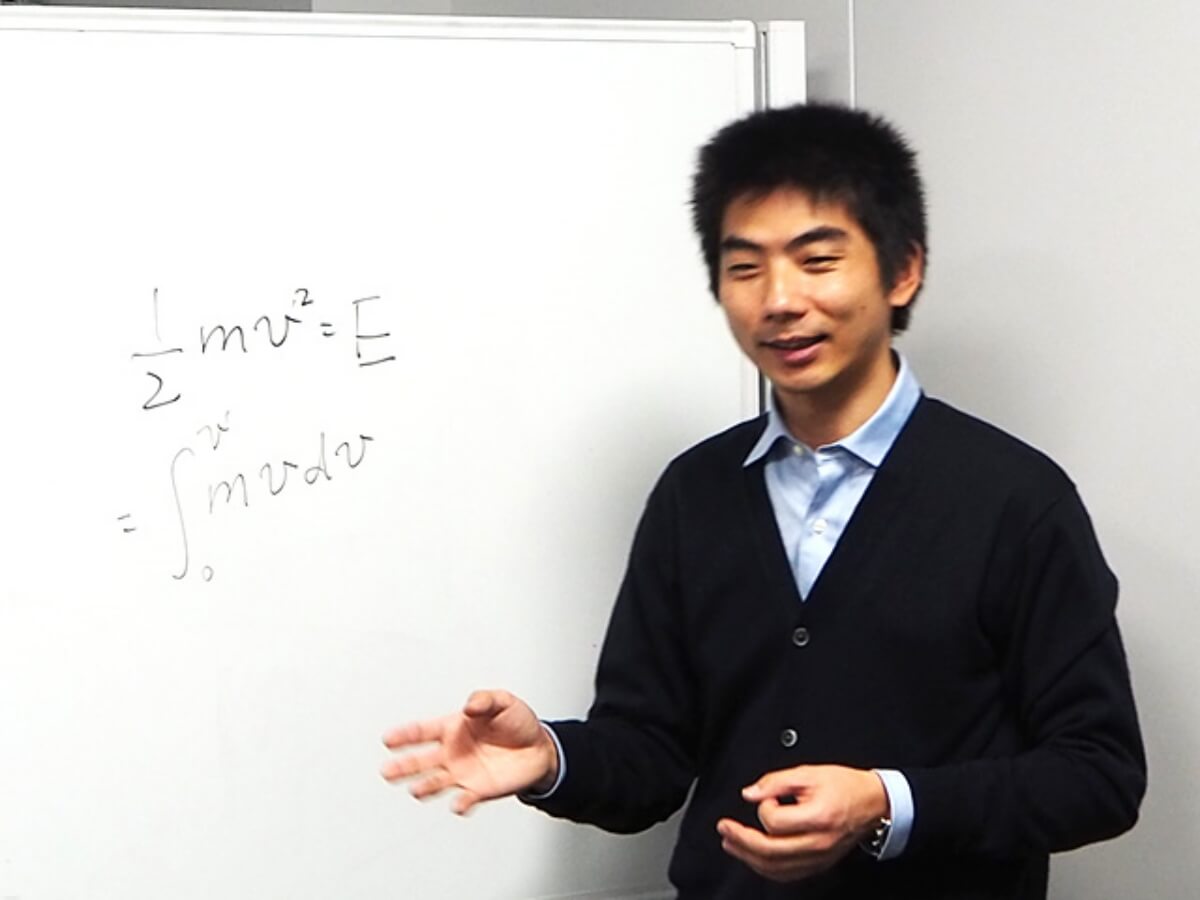 ½mv²=E
=∫₀ᵛmvdv